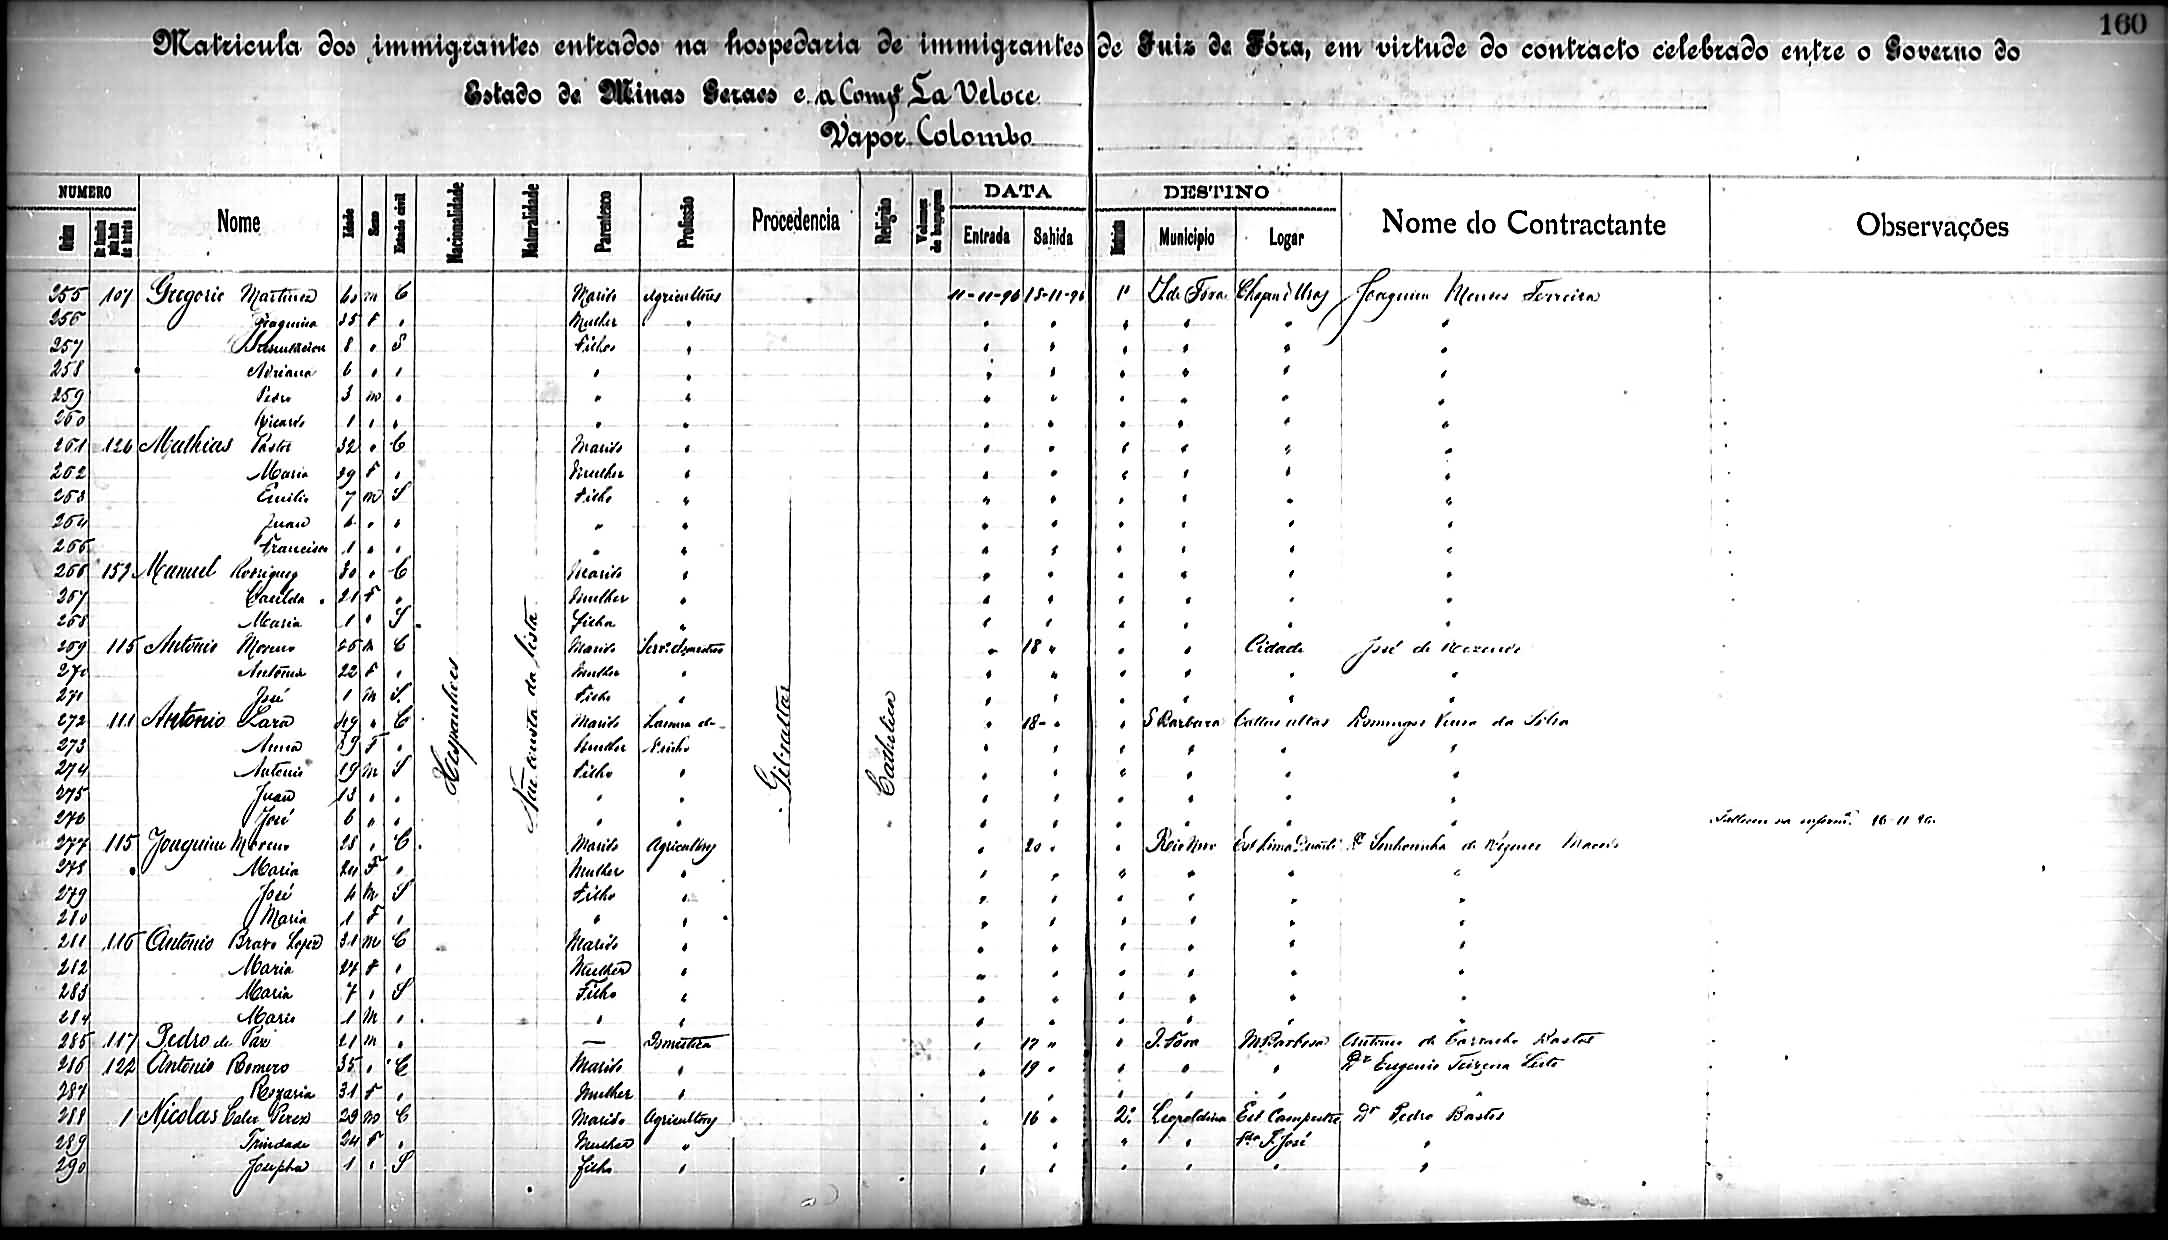 160
Matricula dos immigrantes entrados na hospedaria de immigrantes de Juiz de Fóra, em virtude do contracto celebrado entre o Governo do
Estado de Minas Geraes e a Compª La Veloce
Vapor Colombo
NUMERO DATA DESTINO
Ordem Nome Idade Sexo Estado civil Nacionalidade Naturalidade Parentesco Profissão Procedencia Religião Volumes de bagagem Entrada Sahida Districto Municipio Logar Nome do Contractante Observações
Hespanhoes Não consta da lista Gibraltar Catholica
255 107 Gregorio Martinez 40 m C Marido Agricultores 11-11-96 15-11-96 1º J. de Fóra Joaquim Ferreira
256 Joaquina 35 F " Mulher " " " " " " "
257 8 " S Filhos " " " " " " "
258 Adriana 6 " " " " " " " " " "
259 Pedro 3 m " " " " " " " " "
260 Ricardo 1 " " " " " " " " " "
261 126 Mathias Pastor 32 " C Marido " " " " " " "
262 Maria 29 F " Mulher " " " " " " "
263 Emilio 7 m S Filho " " " " " " "
264 Juan 6 " " " " " " " " " "
265 Francisco 1 " " " " " " " " " "
266 157 Manuel Rodriguez 30 " C Marido " " " " " " "
267 Casilda 21 F " Mulher " " " " " " "
268 Maria 1 " S Filha " " " " " " "
269 115 Antonio Moreno 26 m C Marido " 18 " " " Cidade José de Rezende
270 Antonia 22 F " Mulher " " " " " " "
271 José 1 m S Filho " " " " " " "
272 111 Antonio Lara 49 " C Marido " 18 " " S Barbara Cattas altas Domingos Vieira da Silva
273 Anna 39 F " Mulher " " " " " "
274 Antonio 19 m S Filho " " " " " " "
275 Juan 13 " " " " " " " " " "
276 José 6 " " " " " " " " " " Falleceu na enferm.ª 16-11-96
277 115 Joaquim Moreno 28 " C Marido Agricultores " 20 " " Rio Novo Est Lima Duarte
278 Maria 24 F " Mulher " " " " " " "
279 José 4 m S Filho " " " " " " "
280 Maria 1 F " " " " " " " " "
281 116 Antonio Bravo Lopez 31 m C Marido " " " " " " "
282 Maria 27 F " Mulher " " " " " " "
283 Maria 7 " S Filho " " " " " " "
284 Mario 1 m " " " " " " " " "
285 117 Pedro de 21 m " — Domestica " 17 " " J. Fóra M Barbosa Antonio de Carvalho Bastos
286 122 Antonio Romero 35 " C Marido " " 19 " " " " Dr Eugenio Teixeira Leite
287 Rozaria 31 F " Mulher " " " " " " "
288 1 Nicolas Perez 29 m C Marido Agricultores " 16 " 2º Leopoldina Est Campestre Dr Pedro Bastos
289 Trindade 24 F " Mulher " " " " " Fda S. José "
290 Josepha 1 " S Filho " " " " " " "